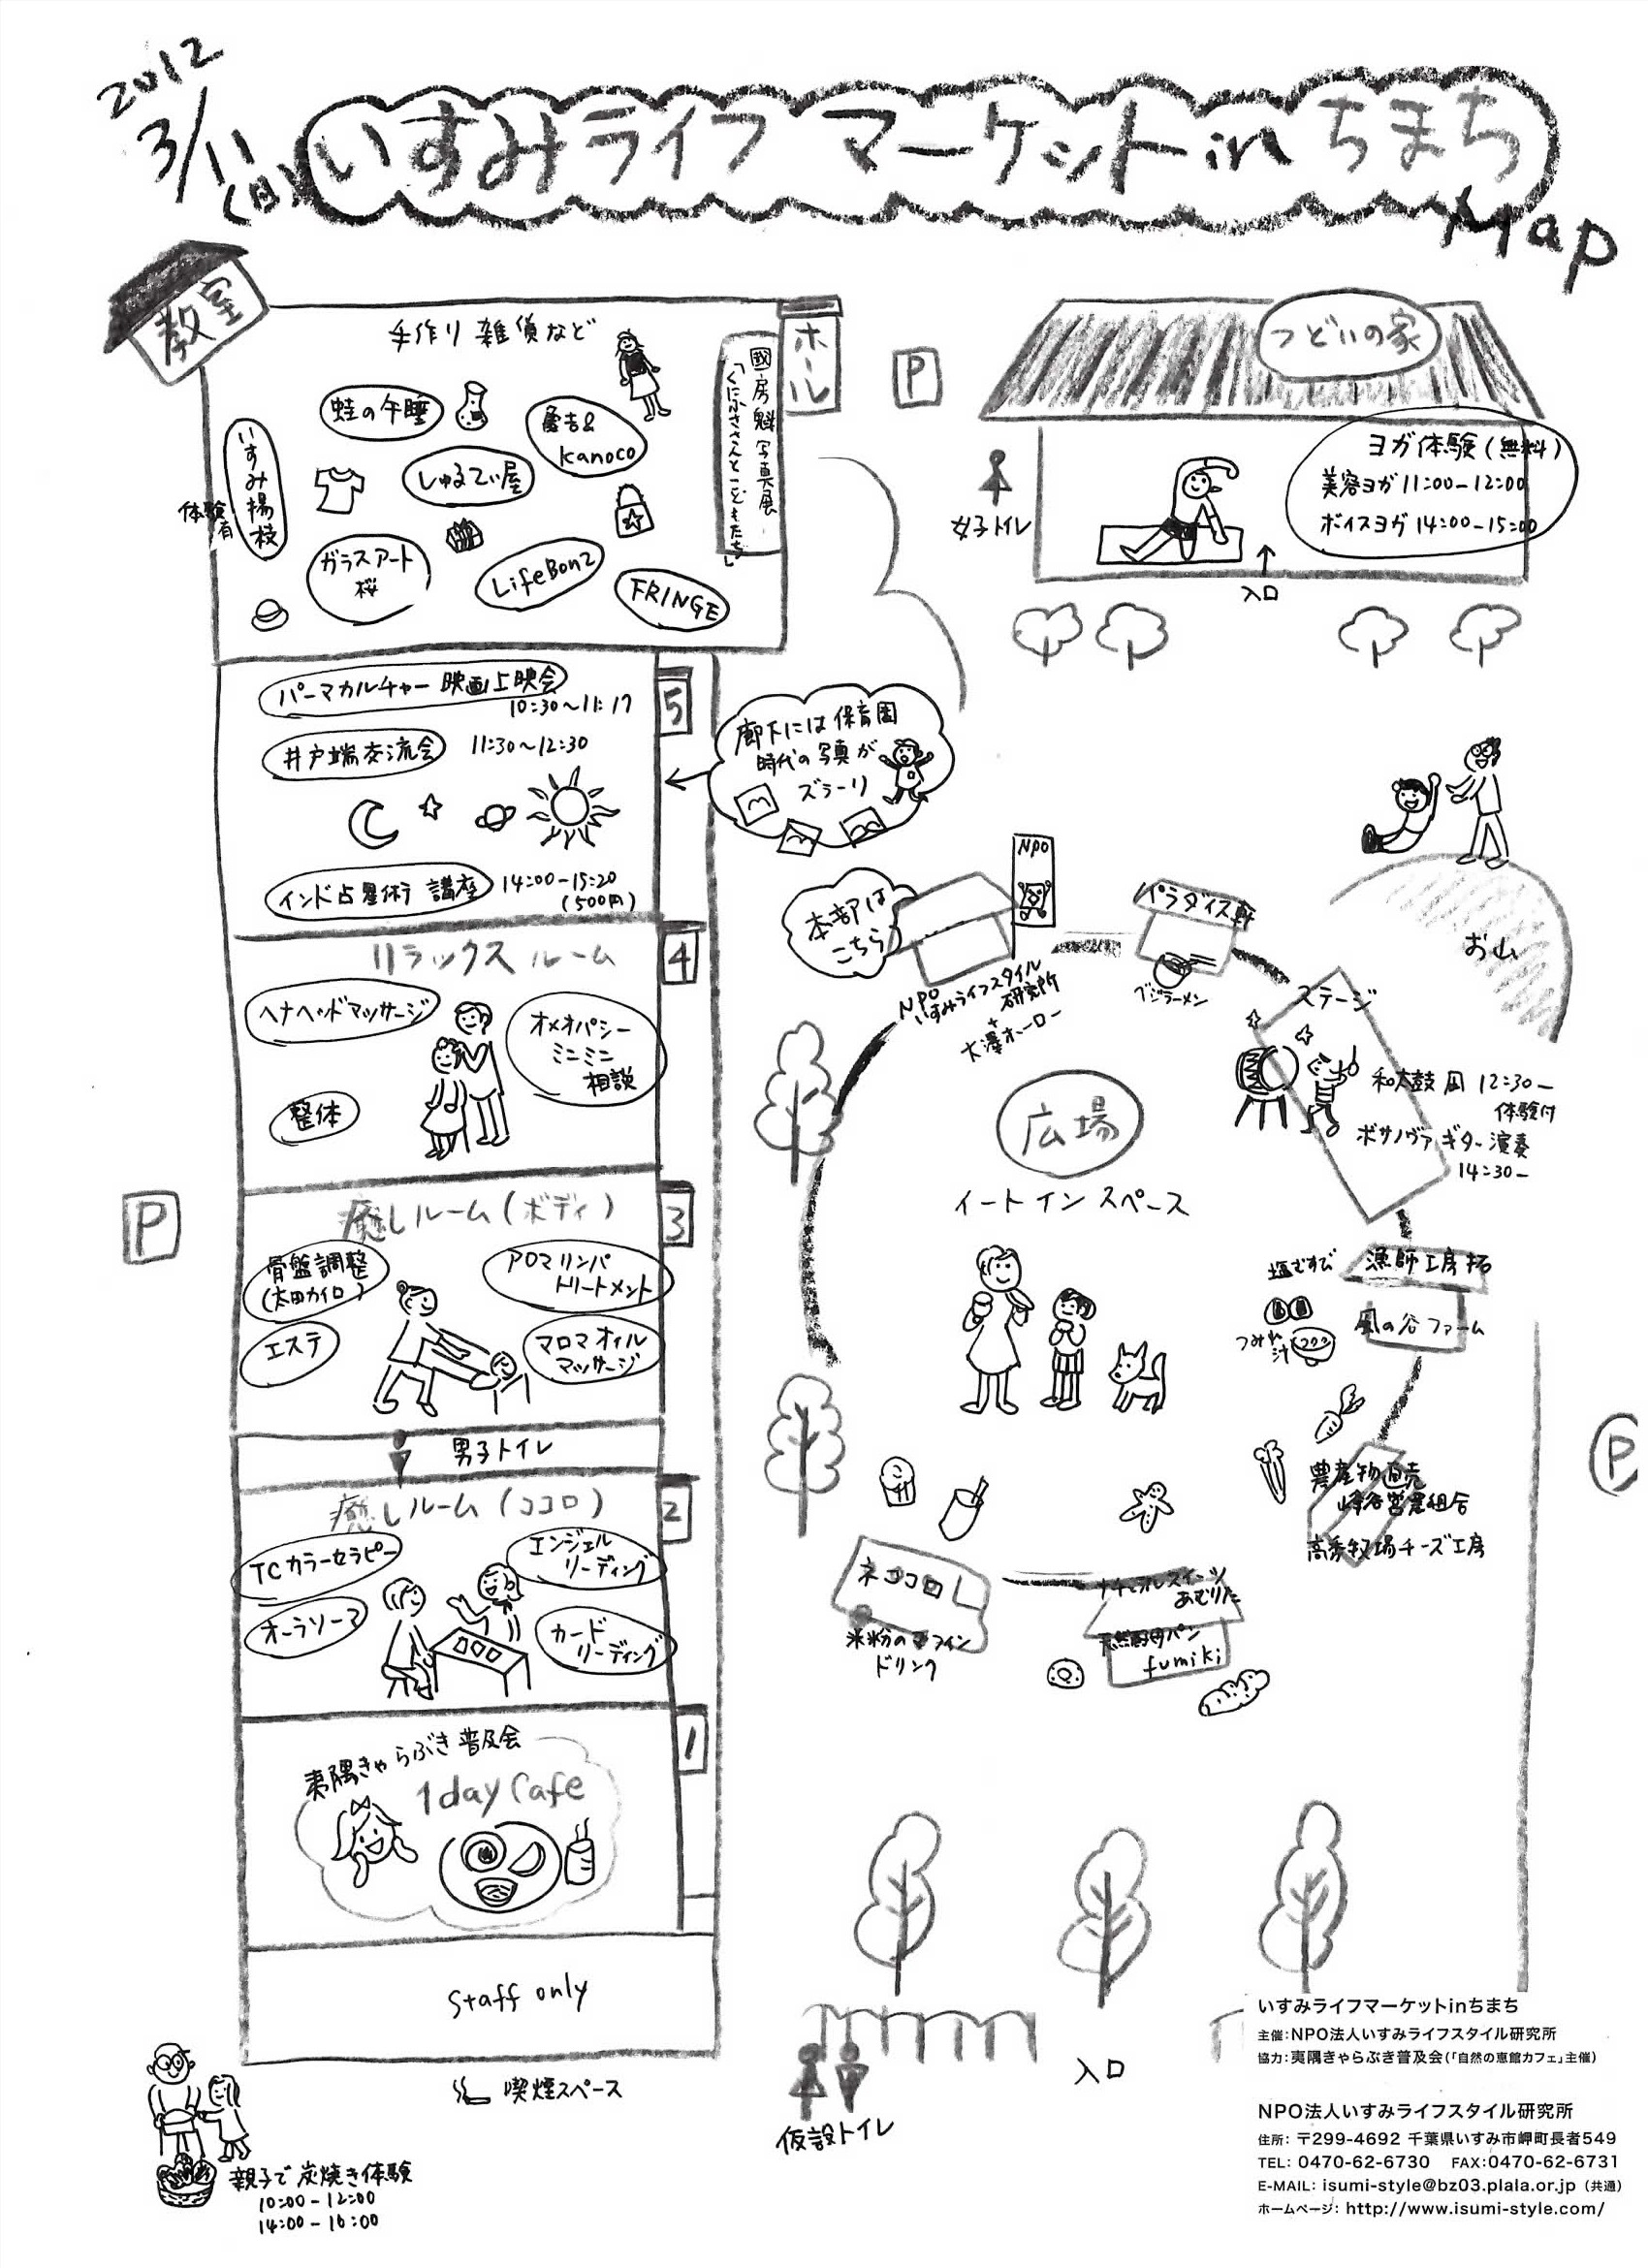 2012
3/11
(日)
いすみライフ マーケット in ちまち
Map
教室
手作り 雑貨など
ホール
國房 魁 写真展
「くにふささんとこどもたち」
蛙の午睡
Kanoco
いすみ楊枝
体験
有
しゅるてぃ屋
ガラスアート
桜
LifeBonz
FRINGE
P
つどいの家
ヨガ体験(無料)
美容ヨガ 11:00-12:00
ボイスヨガ 14:00-15:00
女子トイレ
入口
5
パーマカルチャー 映画上映会
10:30~11:17
井戸端交流会 11:30~12:30
インド占星術 講座 14:00-15:20
(500円)
廊下には保育園
時代の写真が
ズラーリ
4
リラックス ルーム
ヘナヘッドマッサージ
オメオパシー
ミニミニ
相談
整体
本部は
こちら
NPO
NPO
いすみライフスタイル
研究所
+
大澤ホーロー
パラダイス軒
ブジラーメン
お山
ステージ
和太鼓 凪 12:30-
体験付
ボサノヴァ ギター演奏
14:30-
広場
イートイン スペース
P
3
癒しルーム(ボディ)
骨盤調整
(太田カイロ)
アロマリンパ
トリートメント
エステ
マロマオイル
マッサージ
塩むすび
漁師工房 拓
つみれ
汁
風の谷ファーム
男子トイレ
P
2
癒しルーム(ココロ)
TCカラーセラピー
エンジェル
リーディング
オーラソーマ
カード
リーディング
農産物直売
峰谷営農組合
高秀牧場チーズ工房
ネココロ
米粉のマフィン
ドリンク
ナチュラルスイーツ
あむりた
天然酵母パン
fumiki
1
夷隅きゃらぶき普及会
1day Cafe
Staff only
喫煙スペース
親子で炭焼き体験
10:00-12:00
14:00-16:00
仮設トイレ
入口
いすみライフマーケットinちまち
主催:NPO法人いすみライフスタイル研究所
協力:夷隅きゃらぶき普及会(「自然の恵館カフェ」主催)
NPO法人いすみライフスタイル研究所
住所: 〒299-4692 千葉県いすみ市岬町長者549
TEL: 0470-62-6730 FAX:0470-62-6731
E-MAIL: isumi-style@bz03.plala.or.jp (共通)
ホームページ: http://www.isumi-style.com/